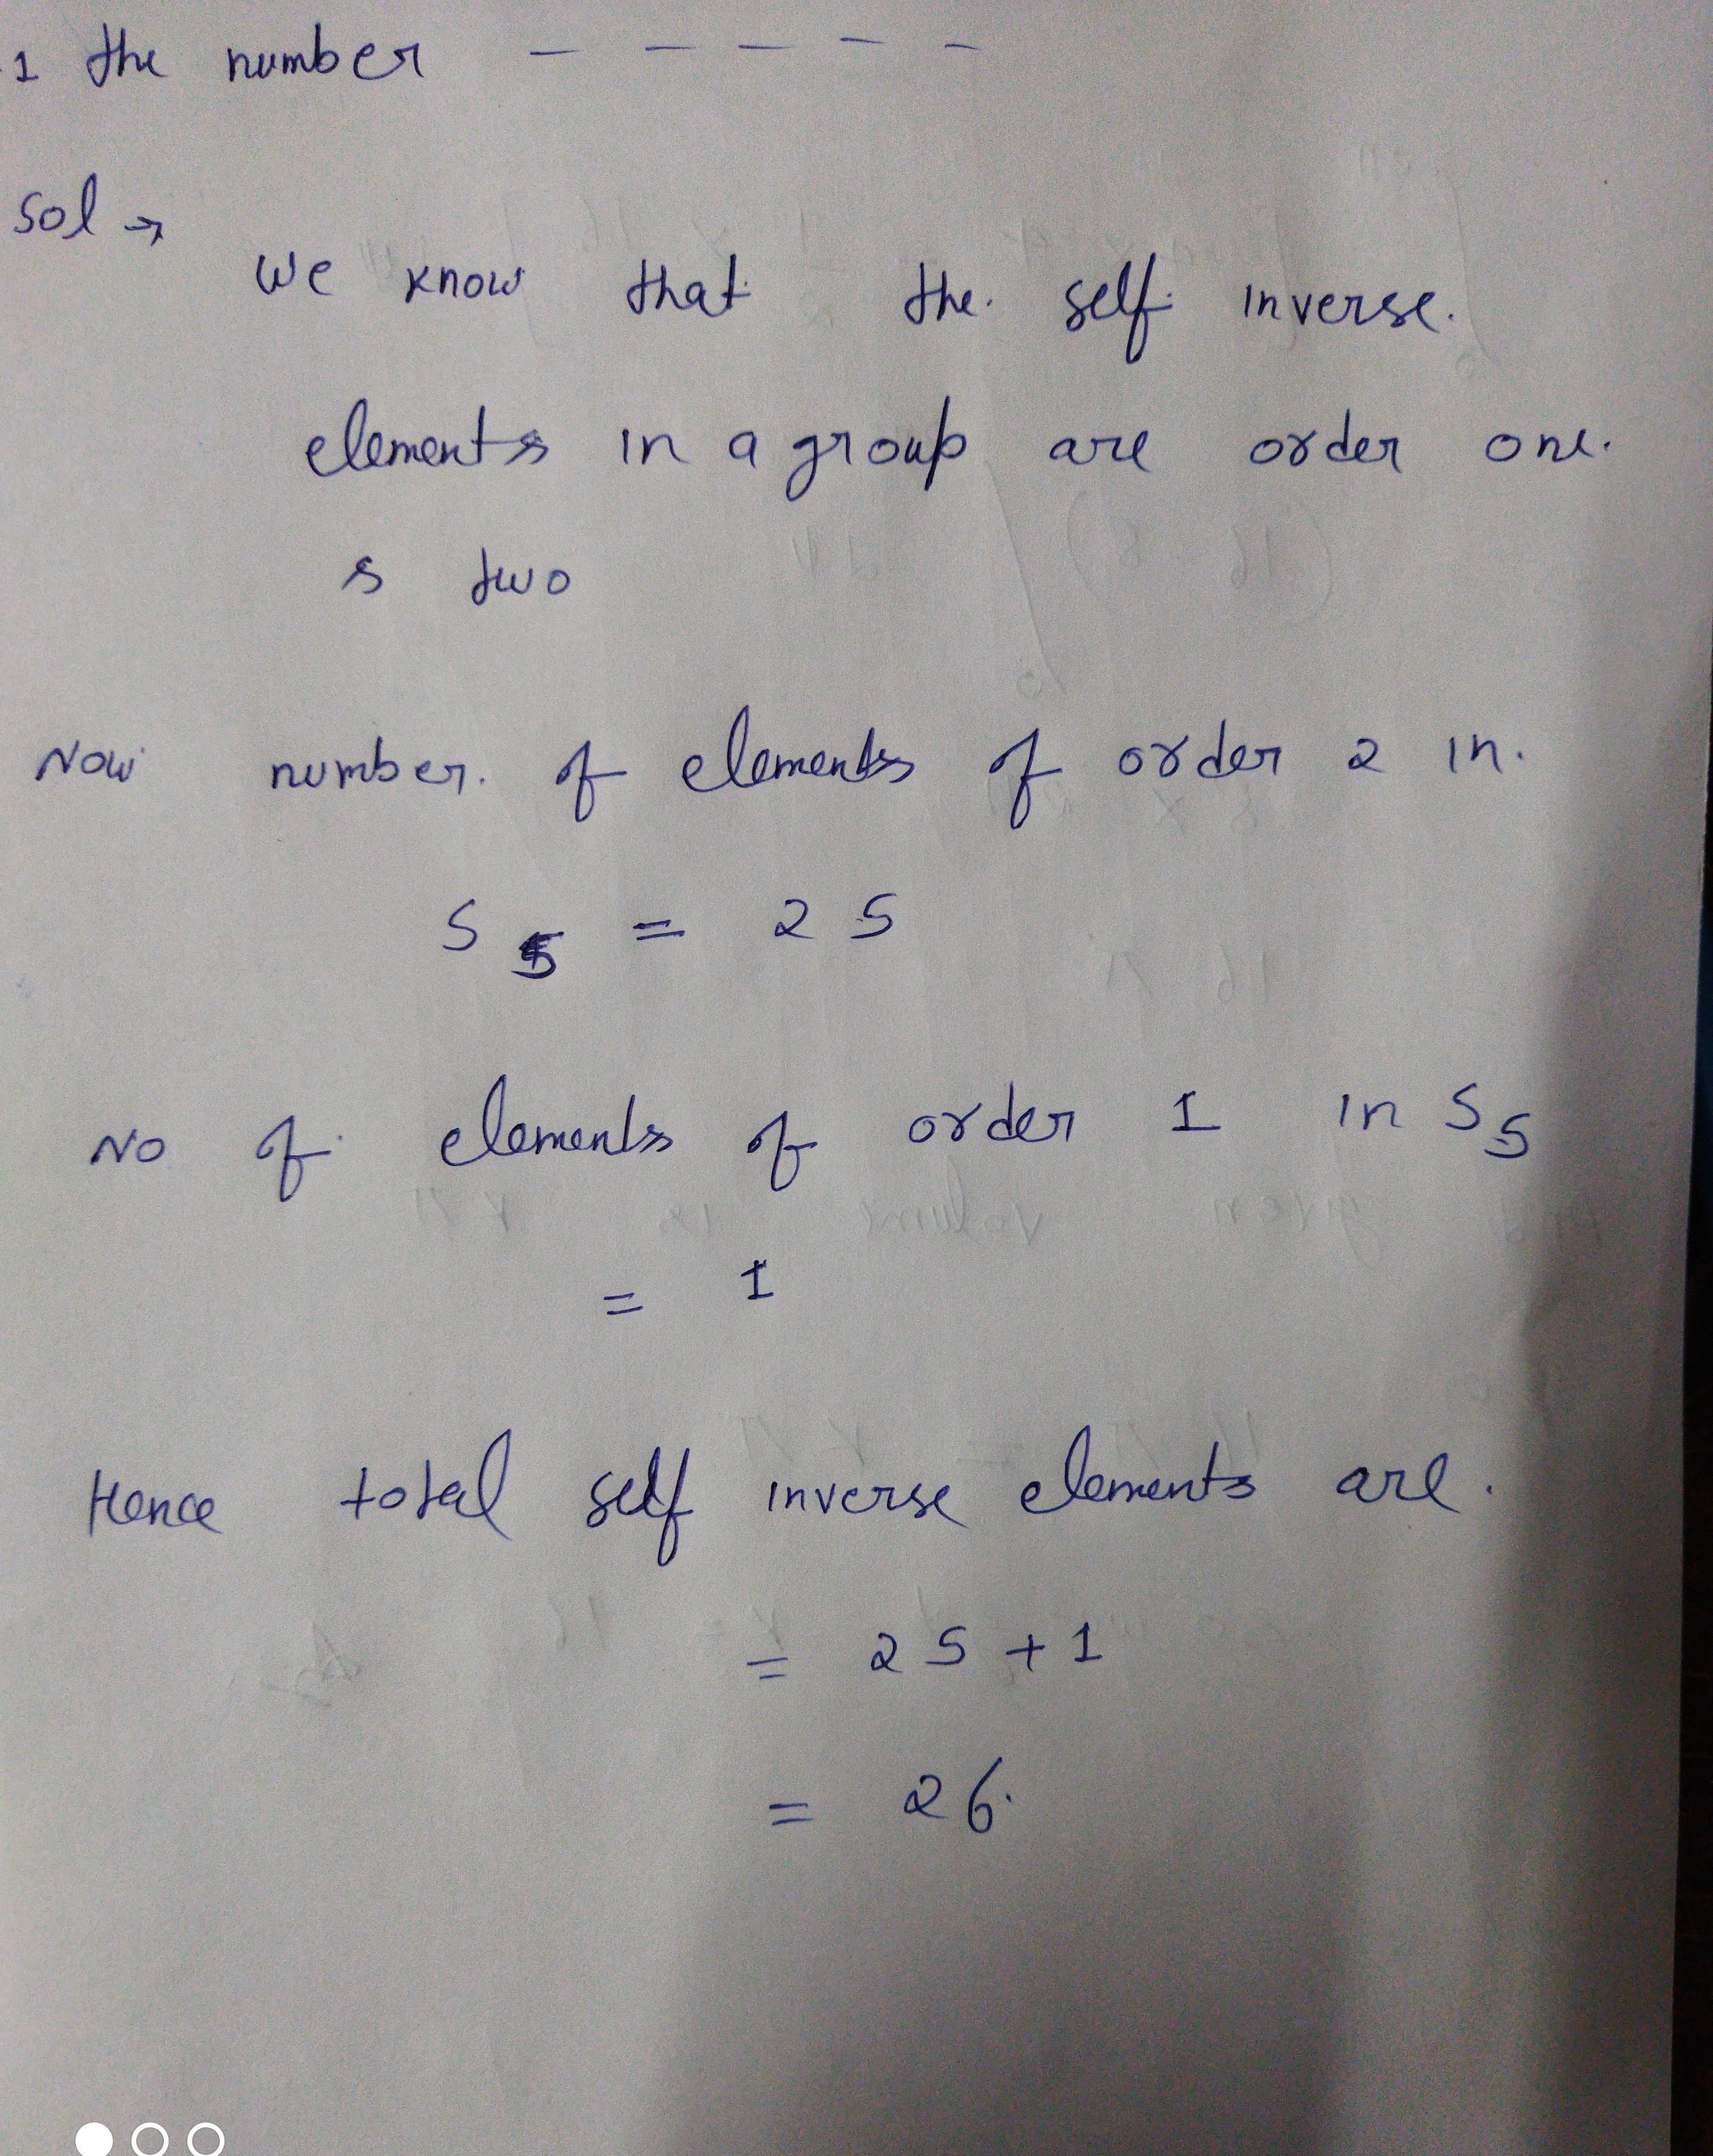 1 the number - - - - -
Sol →
We know that the self inverse.
elements in a group are order one.
& two
Now number. of elements of order 2 in.
S 5 = 25
No of elements of order 1 in S5
= 1
Hence total self inverse elements are.
= 25 + 1
= 26.